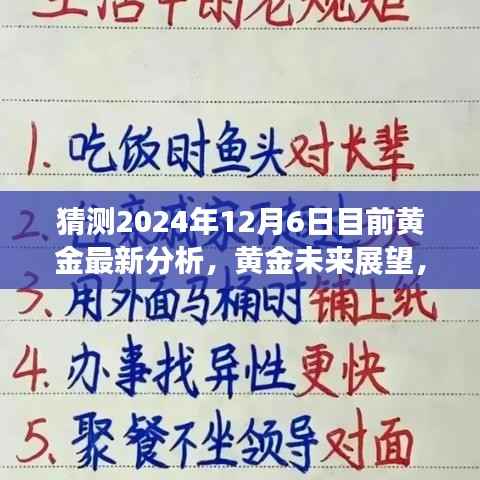 生活中的老规矩
1. 吃饭时鱼头对长辈
2.
猜测2024年12月6日目前黄
金最新分析，黄金未来展望，
3. 用外面马桶时铺上纸
4. 办事找异性更快
5. 聚餐不坐领导对面